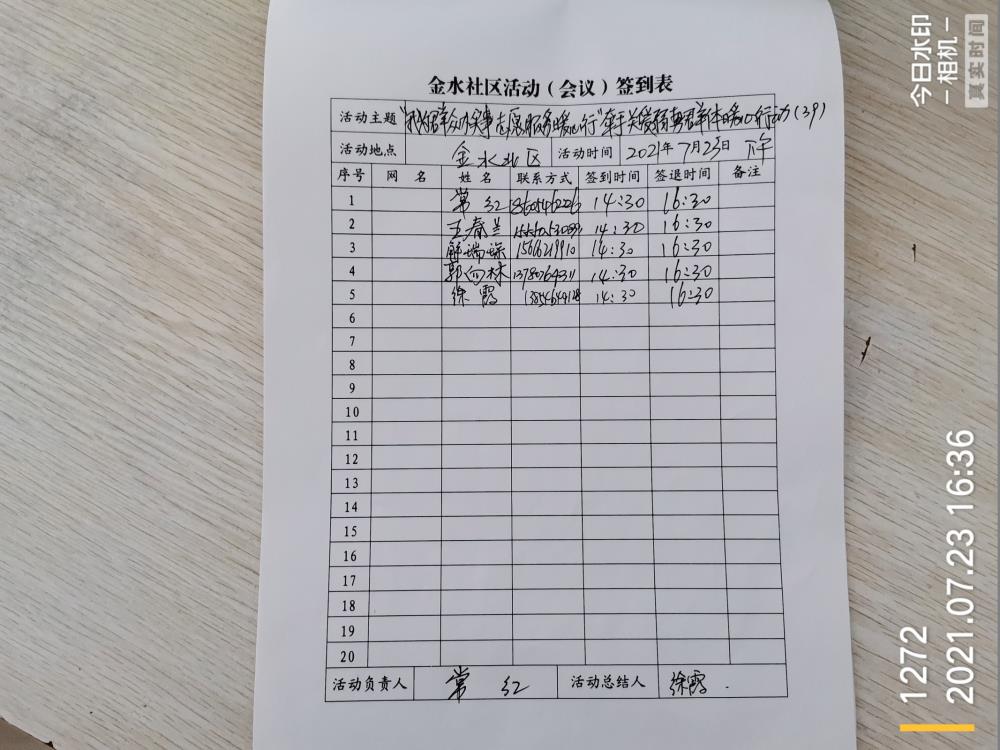 金水社区活动（会议）签到表
活动主题 "我为群众办实事志愿服务暖心行"牵手关爱弱势群体暖心行动(39)
活动地点 金水北区 活动时间 2021年7月23日 下午
序号 网 名 姓 名 联系方式 签到时间 签退时间 备注
1 常红 14:30 16:30
2 王春兰 14:30 16:30
3 15066219910 14:30 16:30
4 郭向林 14:30 16:30
5 徐霞 14:30 16:30
6
7
8
9
10
11
12
13
14
15
16
17
18
19
20
活动负责人 常红 活动总结人 徐霞.
今日水印
-相机-
真实时间
1272
2021.07.23 16:36